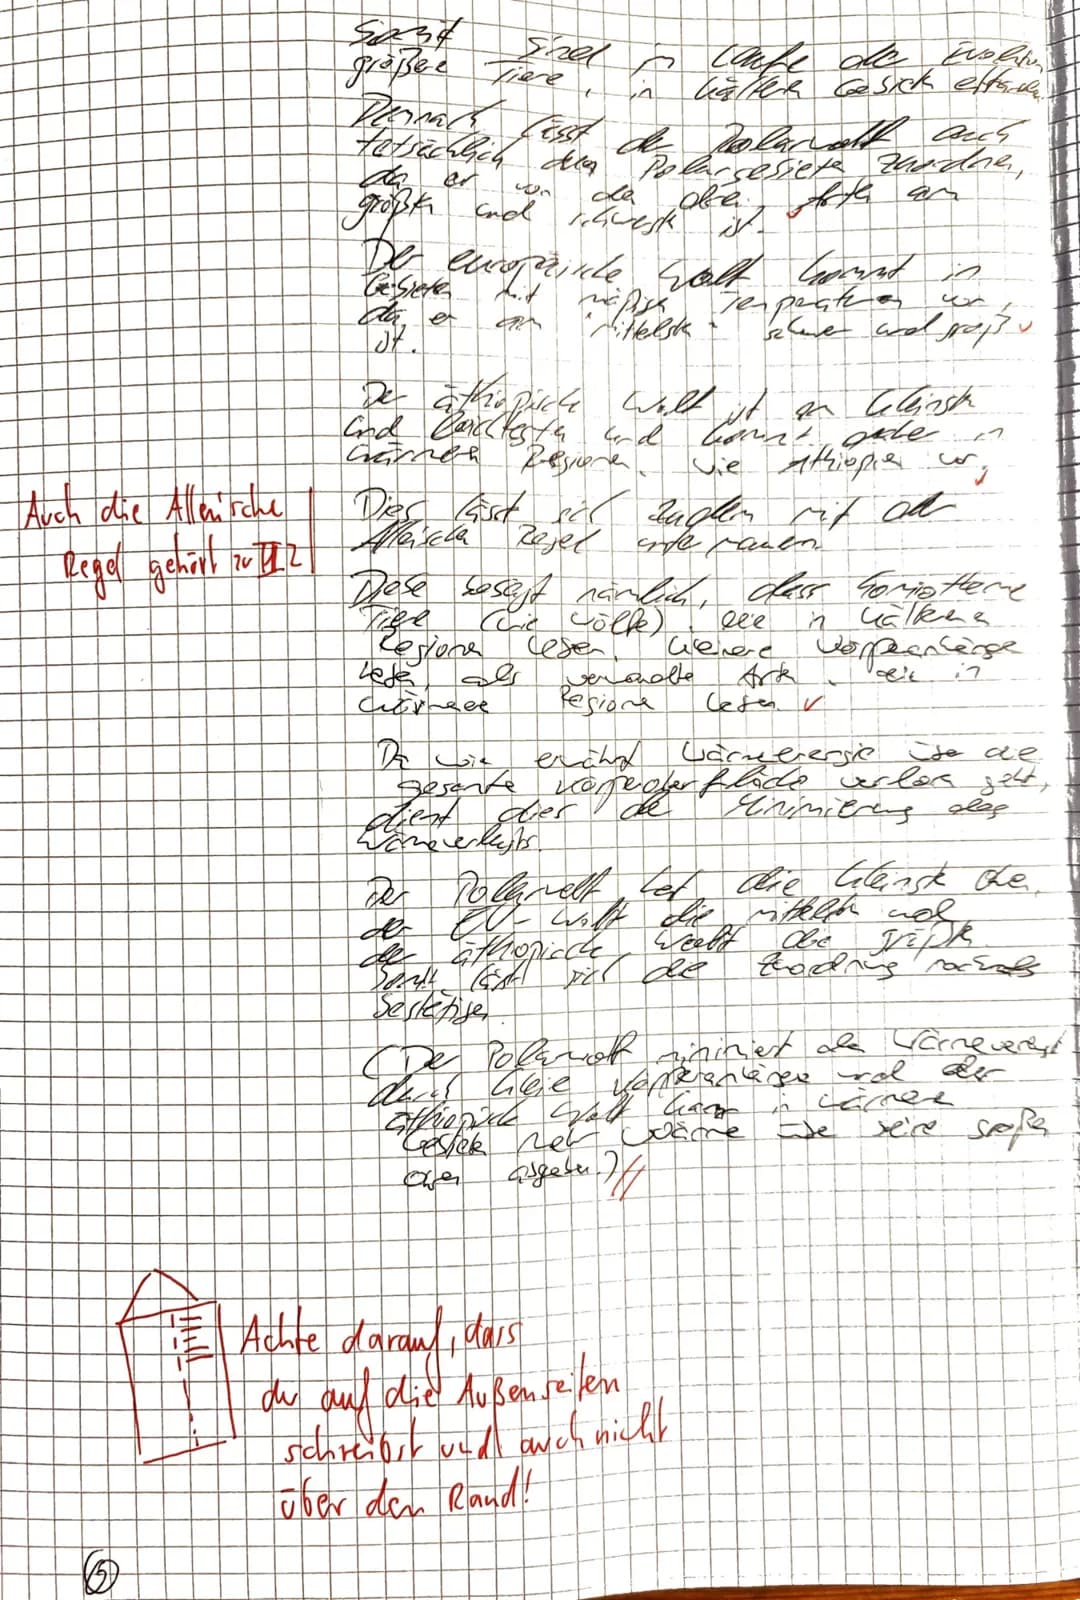 Somit sind im Laufe der Evolution
größere Tiere, in kältern Gebieten
Demnach lässt der Polarwolf auch
tatsächlich den Polargebieten zuordnen,
da er von den drei Arten am
größten und schwersten ist.
Der europäische Wolf kommt in
Gebieten mit mäßigen Temperaturen vor,
da er am "mittelsten" schwer und groß
ist.
Der äthiopische Wolf ist am kleinsten
und leichtesten und kommt in
wärmeren Regionen, wie Äthiopien vor.
Auch die Allen'sche
Regel gehört zu III 2
Dies lässt sich zudem mit der
Allenschen Regel untermauern.
Diese besagt nämlich, dass homiotherme
Tiere (wie Wölfe), die in kälteren
Regionen leben, kleinere Körperanhänge
haben, als verwandte Arten, die in
wärmere Regionen leben
Da wie erwähnt Wärmeenergie über die
gesamte Körperoberfläche verloren geht,
dient dies der Minimierung des
Wärmeverlusts.
Der Polarwolf hat die kleinsten Ohren,
der EU-Wolf die mittleren und
der äthiopische Wolf die größten.
Somit lässt sich die Zuordnung nochmals
bestätigen.
(Der Polarwolf minimiert den Wärmeverlust
durch kleine Körperanhänge und der
äthiopische Wolf kann in wärmeren
Gebieten mehr Wärme über seine großen
Ohren abgeben.)
Achte darauf, dass
du auf die Außenseiten
schreibst und auch nicht
über den Rand!
5